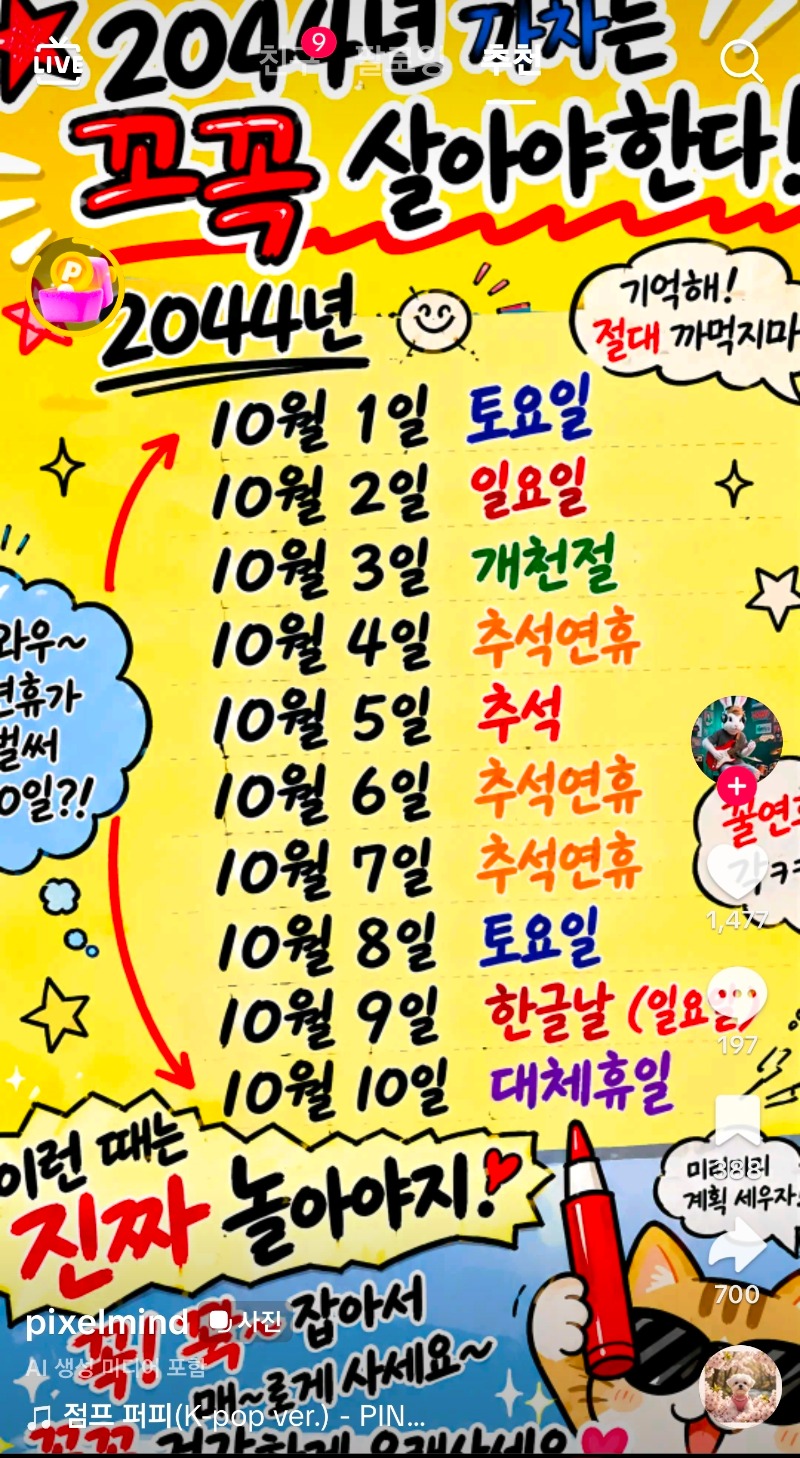 2044년 까지는
꼬꼭 살아야한다!
LIVE
친구
9
팔로잉
추천
P
2044년
기억해!
절대 까먹지마
10월 1일 토요일
10월 2일 일요일
10월 3일 개천절
10월 4일 추석연휴
10월 5일 추석
10월 6일 추석연휴
10월 7일 추석연휴
10월 8일 토요일
10월 9일 한글날 (일요일)
10월 10일 대체휴일
와우~
연휴가
벌써
0일?!
꿀연휴
1,477
197
388
700
이런 때는
진짜 놀아야지!
미리미리
계획 세우자!
꼭! 꼭~ 잡아서
사세요~
pixelmind 사진
AI 생성 미디어 포함
점프 퍼피(K-pop ver.) - PIN...
꼬꼭 건강하게 오래사세요